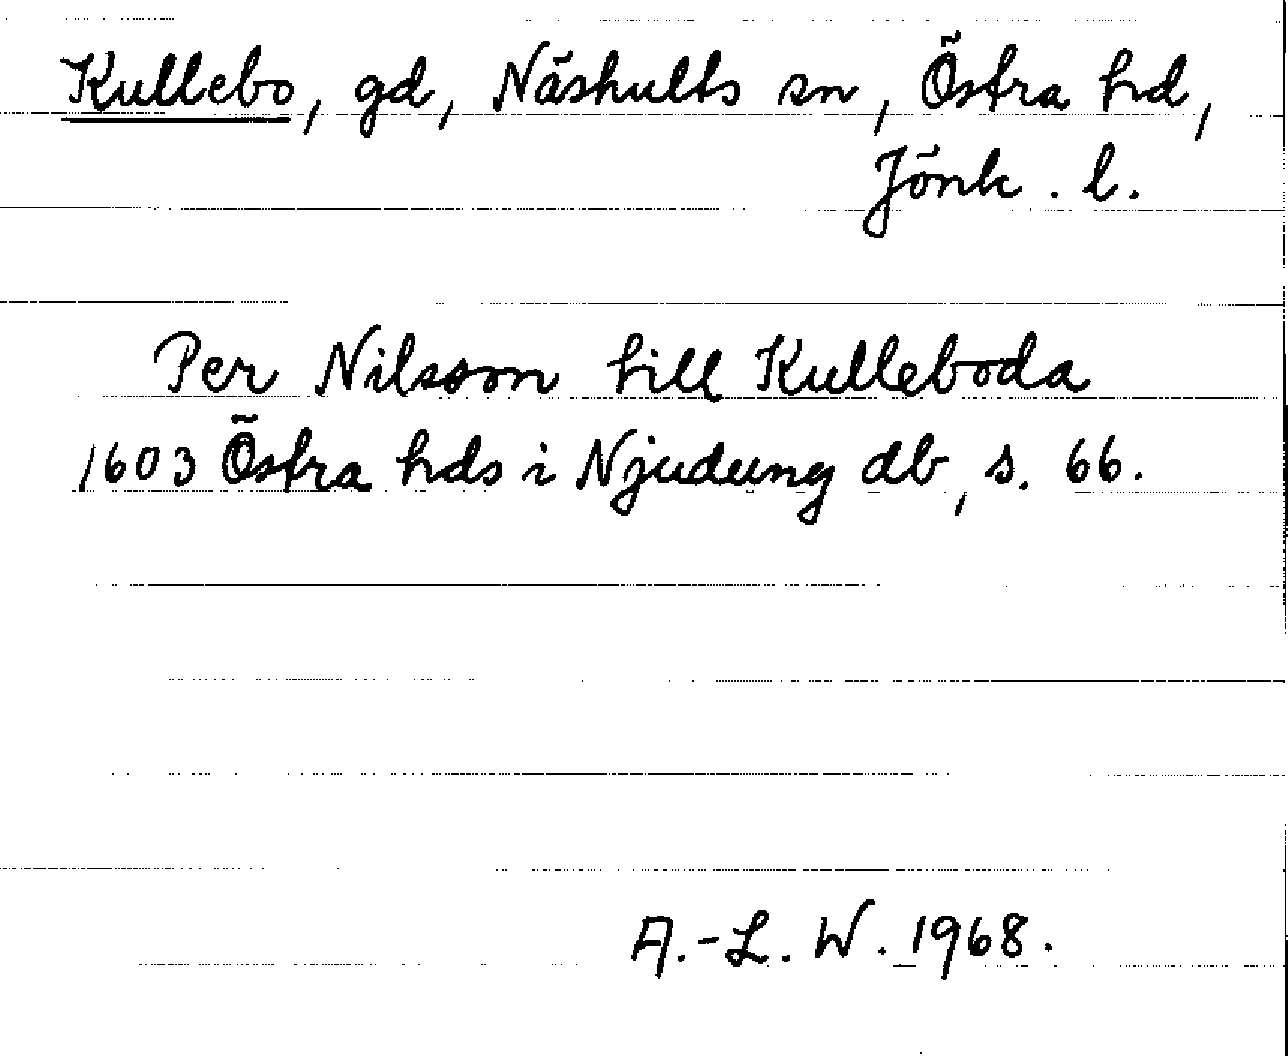 Kullebo, gd, Näshults sn, Östra hd,
Jönk. l.
Per Nilsson till Kulleboda
1603 Östra hds i Njudung db, s. 66.
A.-L. W. 1968.